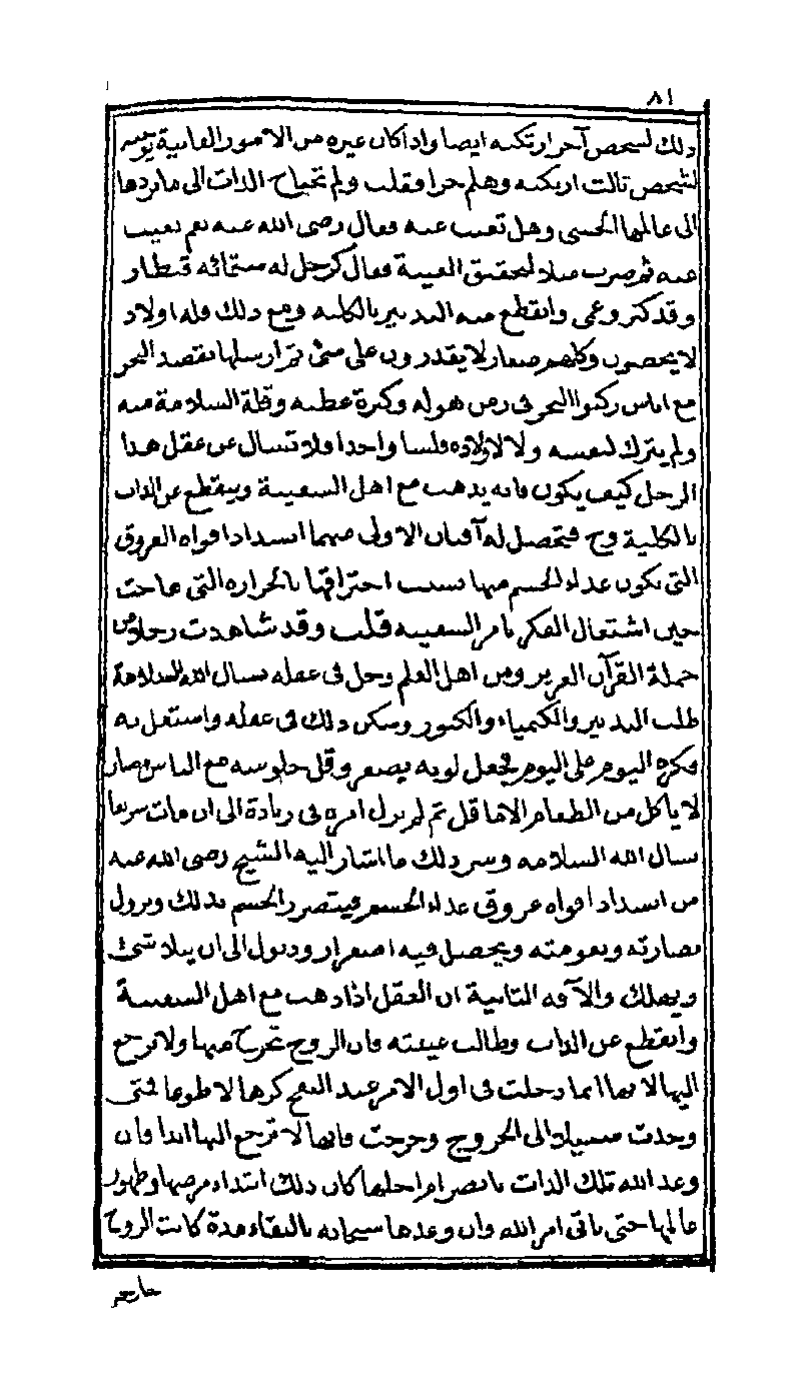 ٨١
ذلك لشخص آخر ارتكبه ايضا واذا كان غيره من الامور الفانية يوجبه
لشخص ثالث ارتكبه وهلم جرا فقلت ولم تحتاج الذات الى ما يردها
الى عالمها الحسي وهل تغيب عنه فقال رضي الله عنه نعم تغيب
عنه ثم ضرب مثلا لتحقيق الغيبة فقال كرجل له ستمائه قنطار
وقد كبر وعمي وانقطع منه التدبير بالكلية ومع ذلك فله اولاد
لا يحصون وكلهم صغار لا يقدرون على شئ ثم ارسلها بقصد البحر
مع اناس ركبوا البحر في زمن هوله وكثرة عطبه وقلة السلامة منه
ولم يترك لنفسه ولا لاولاده فلسا واحدا فلا تسال عن عقل هذا
الرجل كيف يكون فانه يذهب مع اهل السفينة وينقطع عن الذات
بالكلية وح فتحصل له آفتان الاولى منهما انسداد افواه العروق
التي يكون غذاء الجسم منها بسبب احتراقها بالحراره التي هاجت
حين اشتغال الفكر بامر السفينه قلت وقد شاهدت رجلا من
حملة القرآن العزيز ومن اهل العلم وحل في عقله نسال الله السلامة
طلب التدبير والكيمياء والكنوز وسكن ذلك في عقله واستغل به
فكره اليوم على اليوم فجعل لونه يصفر وقل جلوسه مع الناس وصار
لا ياكل من الطعام الا ما قل ثم لم يزل امره في زيادة الى ان مات سريعا
نسال الله السلامه وسر ذلك ما اشار اليه الشيخ رضي الله عنه
من انسداد افواه عروق غذاء الجسم فيتضرر الجسم بذلك ويزول
نضارته ونعومته ويحصل فيه اصفرار وذبول الى ان يتلاشى
ويهلك والآفه الثانية ان العقل اذا ذهب مع اهل السفينة
وانقطع عن الذات وطالت غيبته فان الروح تخرج منها ولا ترجع
اليها لانها انما دخلت في اول الامر عند النفخ كرها لا طوعا فمتى
وجدت سبيلا الى الخروج وخرجت فانها لا ترجع اليها ابدا فان
وعد الله تلك الذات بانصرام اجلها كان ذلك ابتداء مرضها وظهور
عالمها حتى ياتي امر الله وان وعدها سبحانه بالبقاء مدة كانت الروح